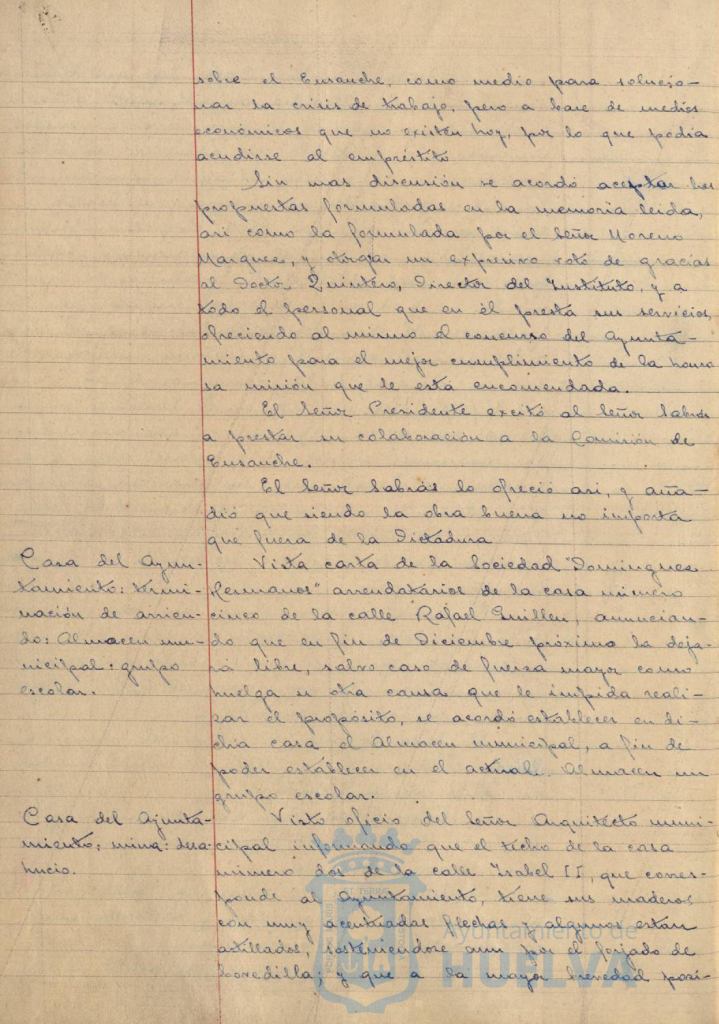 sobre el Ensanche, como medio para solucio-
nar la crisis de trabajo, pero a base de medios
económicos que no existen hoy, por lo que podia
acudirse al empréstito
Sin mas discusión se acordó aceptar las
propuestas formuladas en la memoria leida,
asi como la formulada por el Señor Moreno
Marquez, y otorgar un expresivo voto de gracias
al Doctor Quintero, Director del Instituto, y a
todo el personal que en él presta sus servicios,
ofreciendo al mismo el concurso del Ayunta-
miento para el mejor cumplimiento de la honro
sa misión que le está encomendada.
El Señor Presidente excitó al Señor Sabras
a prestar su colaboración a la Comisión de
Ensanche.
El Señor Sabrás lo ofreció asi, y aña-
dió que siendo la obra buena no importa
que fuera de la Dictadura
Casa del Ayun-
tamiento: termi-
nación de arrien-
do: Almacen mu-
nicipal: grupo
escolar.
Vista carta de la Sociedad "Domingues
Hermanos" arrendatários de la casa número
cinco de la calle Rafael Guillen, anuncian-
do que en fin de Diciembre próximo la deja-
rá libre, salvo caso de fuerza mayor como
huelga u otra causa que le impida reali-
zar el propósito, se acordó establecer en di-
cha casa el Almacen municipal, a fin de
poder establecer en el actual Almacen un
grupo escolar.
Casa del Ayunta-
miento; ruina: desa-
hucio.
Visto oficio del Señor Arquitecto muni-
cipal informando que el techo de la casa
número dos de la calle Isabel II, que corres-
ponde al Ayuntamiento, tiene sus maderos
con muy acentuadas flechas y algunos estan
astillados, sosteniendose aun por el forjado de
bovedilla; y que a la mayor brevedad posi-
Ayuntamiento de
HUELVA